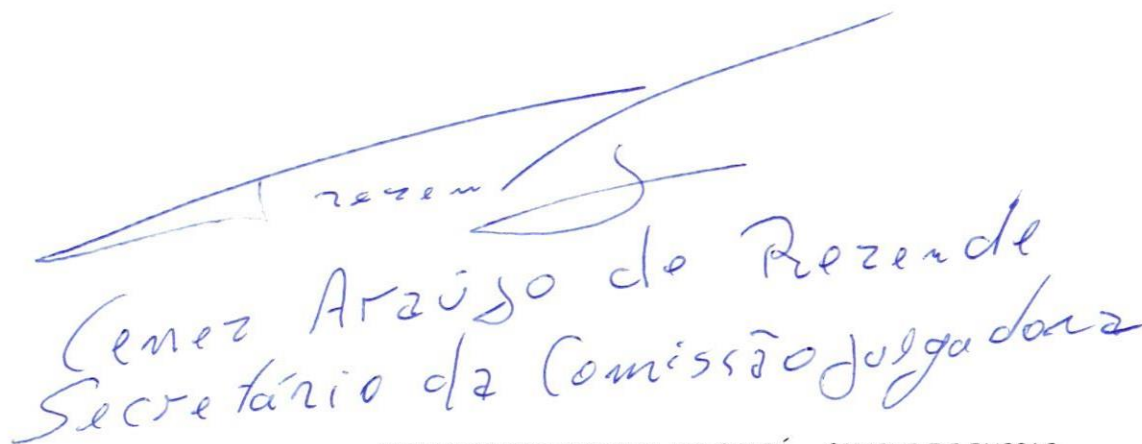 rezen
Cenez Araújo de Rezende
Secretário da Comissão Julgadora